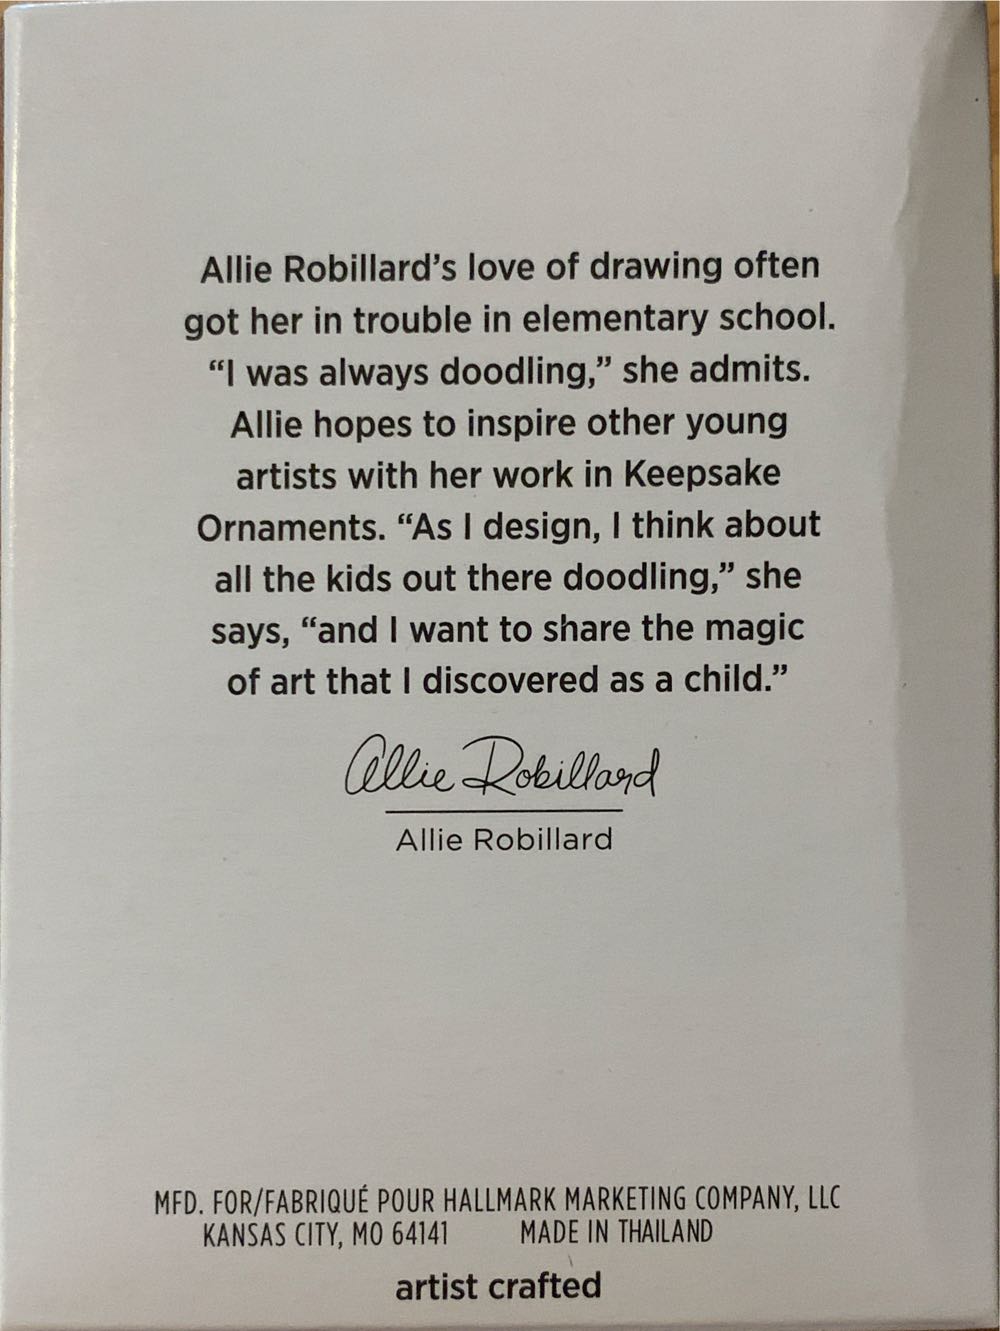 Allie Robillard’s love of drawing often
got her in trouble in elementary school.
“I was always doodling,” she admits.
Allie hopes to inspire other young
artists with her work in Keepsake
Ornaments. “As I design, I think about
all the kids out there doodling,” she
says, “and I want to share the magic
of art that I discovered as a child.”
Allie Robillard
Allie Robillard
MFD. FOR/FABRIQUÉ POUR HALLMARK MARKETING COMPANY, LLC
KANSAS CITY, MO 64141 MADE IN THAILAND
artist crafted